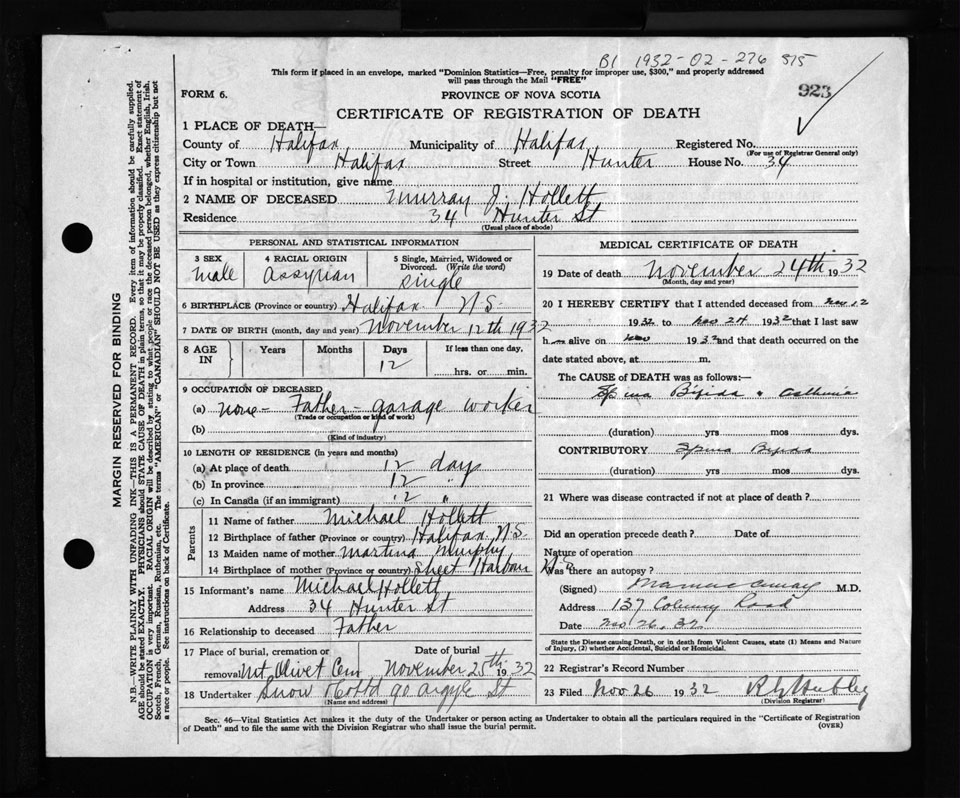 B1 1932-02-276 515
This form if placed in an envelope, marked "Dominion Statistics—Free, penalty for improper use, $300," and properly addressed
will pass through the Mail "FREE"
923
FORM 6.
PROVINCE OF NOVA SCOTIA
CERTIFICATE OF REGISTRATION OF DEATH
1 PLACE OF DEATH—
County of Halifax Municipality of Halifax Registered No.
(For use of Registrar General only)
City or Town Halifax Street Hunter House No. 34
If in hospital or institution, give name
2 NAME OF DECEASED Murray J. Hollett
Residence 34 Hunter St
(Usual place of abode)
PERSONAL AND STATISTICAL INFORMATION
3 SEX male
4 RACIAL ORIGIN Assyrian
5 Single, Married, Widowed or Divorced. (Write the word) single
6 BIRTHPLACE (Province or country) Halifax N.S.
7 DATE OF BIRTH (month, day and year) November 12th 1932
8 AGE IN Years Months Days 12 If less than one day, hrs. or min.
9 OCCUPATION OF DECEASED
(a) none - Father - garage worker
(Trade or occupation or kind of work)
(b)
(Kind of industry)
10 LENGTH OF RESIDENCE (In years and months)
(a) At place of death 12 days
(b) In province 12 "
(c) In Canada (if an immigrant) 12 "
Parents
11 Name of father Michael Hollett
12 Birthplace of father (Province or country) Halifax N.S.
13 Maiden name of mother Martina Murphy
14 Birthplace of mother (Province or country) Sheet Harbour
15 Informant's name Michael Hollett
Address 34 Hunter St
16 Relationship to deceased Father
17 Place of burial, cremation or removal Mt. Olivet Cem Date of burial November 25th 1932
18 Undertaker Snow & Co Ltd 90 Argyle St
(Name and address)
MEDICAL CERTIFICATE OF DEATH
19 Date of death November 24th 1932
(Month, day and year)
20 I HEREBY CERTIFY that I attended deceased from Nov. 12
1932 to Nov 24 1932 that I last saw
h m alive on Nov 1932 and that death occurred on the
date stated above, at m.
The CAUSE of DEATH was as follows:—
Spina Bifida &
(duration) yrs mos dys.
CONTRIBUTORY Spina Bifida
(duration) yrs mos dys.
21 Where was disease contracted if not at place of death?
Did an operation precede death? Date of
Nature of operation
Was there an autopsy? No
(Signed) M.D.
Address 137 Road
Date Nov 26, 32
State the Disease causing Death, or in death from Violent Causes, state (1) Means and Nature of Injury, (2) whether Accidental, Suicidal or Homicidal.
22 Registrar's Record Number
23 Filed Nov 26 1932
(Division Registrar)
Sec. 46—Vital Statistics Act makes it the duty of the Undertaker or person acting as Undertaker to obtain all the particulars required in the "Certificate of Registration
of Death" and to file the same with the Division Registrar who shall issue the burial permit. (OVER)
MARGIN RESERVED FOR BINDING
N.B.—WRITE PLAINLY WITH UNFADING INK—THIS IS A PERMANENT RECORD. Every item of information should be carefully supplied.
AGE should be stated EXACTLY. PHYSICIANS should STATE CAUSE OF DEATH in plain terms, so that it may be properly classified. Exact statement of
OCCUPATION is very important. RACIAL ORIGIN will be described by stating to what people or race the deceased person belonged, whether English, Irish,
Scotch, French, German, Russian, Ruthenian, etc. The terms "AMERICAN" or "CANADIAN" SHOULD NOT BE USED as they express citizenship but not
a race or people. See instructions on back of Certificate.